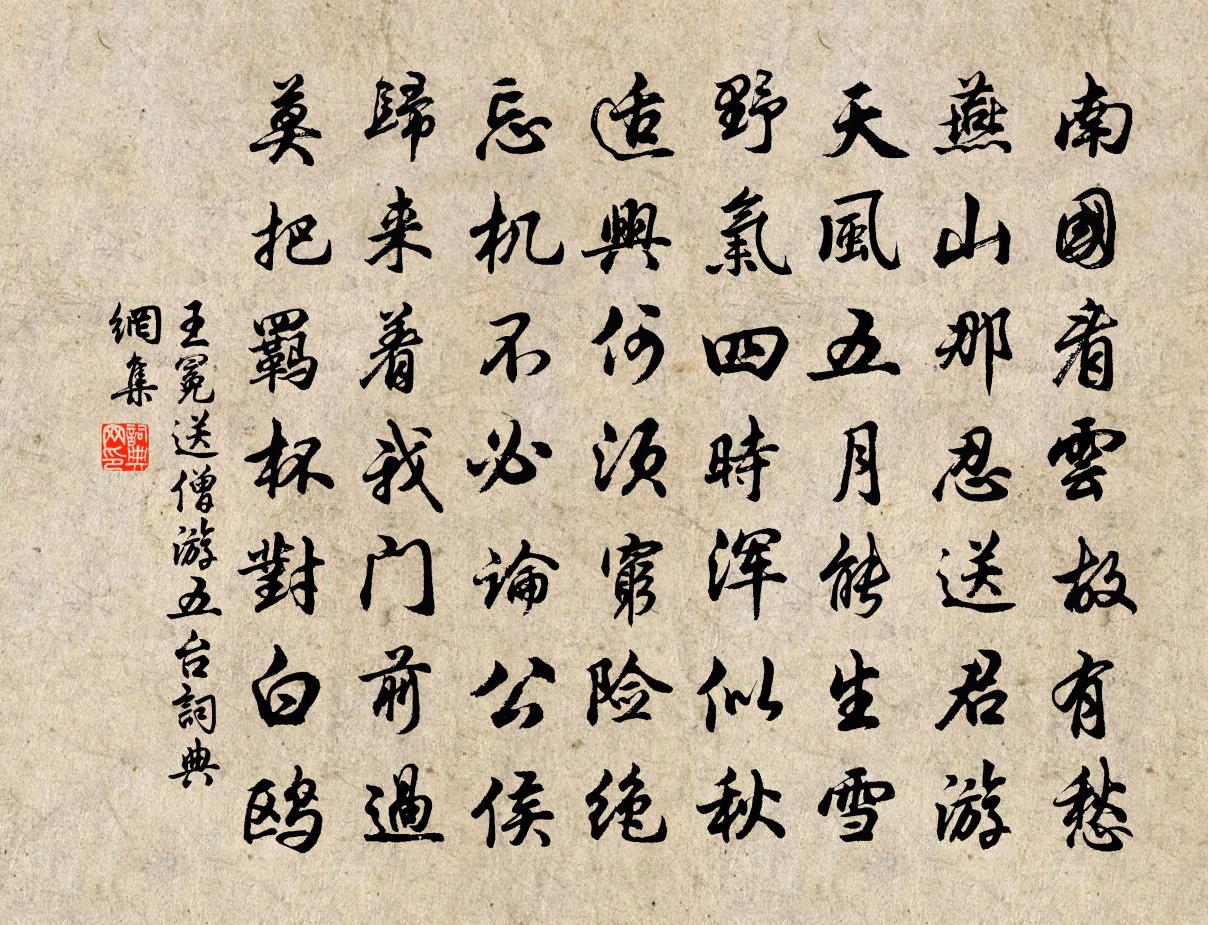 南國看雲故有愁
燕山那忍送君游
天風五月能生雪
野氣四時浑似秋
适興何须窮险绝
忘机不必論公侯
歸来着我门前過
莫把羁杯對白鸥
王冕送僧游五台詞典
網集
詞典网印